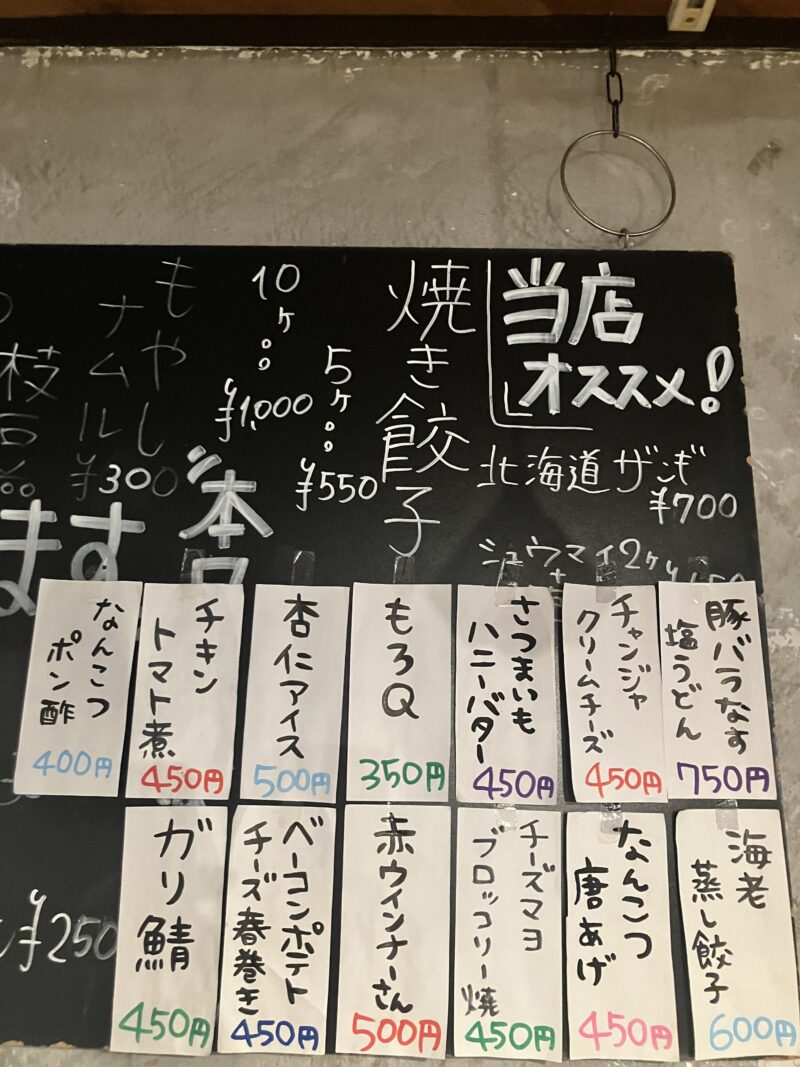 当店
オススメ!
北海道ザンギ
¥700
シュウマイ2ヶ
焼き餃子
5ヶ。。
¥550
10ヶ。。
¥1,000
もやし
ナムル
¥300
枝
ます
¥250
豚バラなす
塩うどん
750円
チャンジャ
クリームチーズ
450円
さつまいも
ハニーバター
450円
もろQ
350円
杏仁アイス
500円
チキン
トマト煮
450円
なんこつ
ポン酢
400円
海老
蒸し餃子
600円
なんこつ
唐あげ
450円
チーズマヨ
ブロッコリー焼
450円
赤ウインナーさん
500円
ベーコンポテト
チーズ春巻き
450円
ガリ鯖
450円